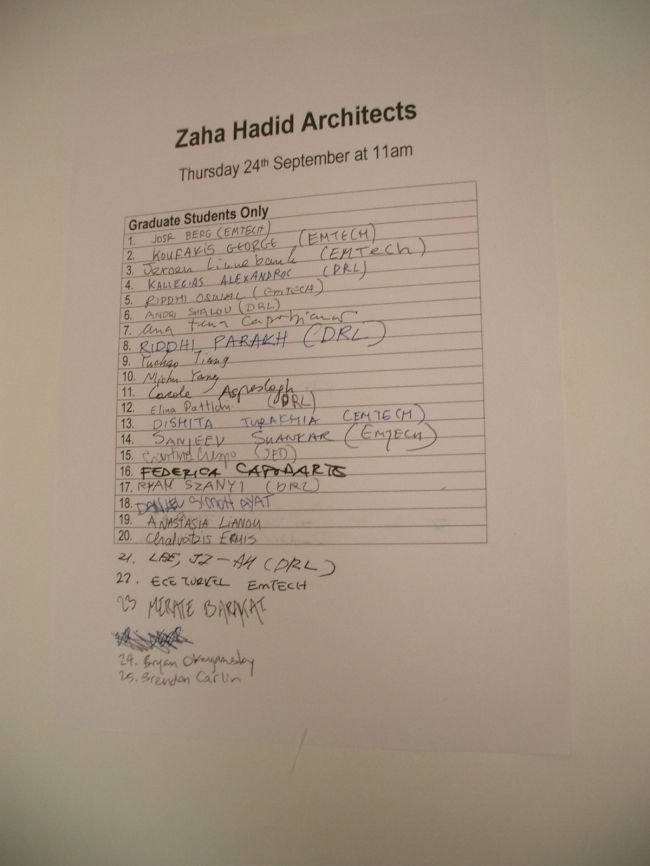 Zaha Hadid Architects
Thursday 24th September at 11am
Graduate Students Only
1. JOSE BERG (EMTECH)
2. KOUFAKIS GEORGE (EMTECH)
3. Jeroen Linnebank (EMTECH)
4. KALLEGIAS ALEXANDROC (DRL)
5. RIDDHI OSWAL (EMTECH)
6. ANDRI SHALOU (DRL)
7. Ana
8. RIDDHI PARAKH (DRL)
9. Yuchao
10. Yang
11. Carole Aspeslagh
12. Elina Pattichi (DRL)
13. DISHITA TURAKHIA (EMTECH)
14. SANJEEV SHANKAR (EMTECH)
15. Crespo
16. FEDERICA CAPODARTE
17. RYAN SZANYI (DRL)
18. DANIEL SIMON AYAT
19. ANASTASIA LIANOU
20. Chalvatzis ERMIS
21. LEE, JZ-AH (DRL)
22. ECE TURKEL EMTECH
23 MERATE BARAKAT
24. Bryan
25. Brendon Carlin